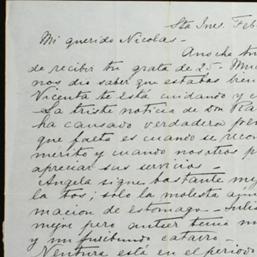 Sta Ines. Feb
Mi querido Nicolas -
Anoche tu
de recibir tu grata de 25 - Mu
nos dio saber que estabas
Vicenta te está cuidando y
La triste noticia de Don
ha causado verdadera
que falta es cuando se reco
merito y cuando nosotros
apreciar sus servicios -
Angela sigue bastante me
la tos; solo la molesta
macion de estomago - Julia
mejor pero
y mi furibundo catarro -
Ventura está en el período